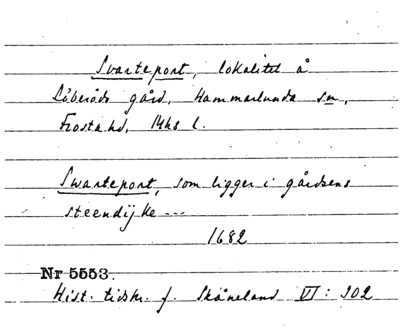 Svarteport, lokalitet å
Löberöds gård, Hammarlunda sn,
Frosta hd, Mhs l.
Swarteport, som ligger i gårdsens
steendijke ---
1682
Nr 5553.
Hist. tidskr. f. Skåneland VI: 302